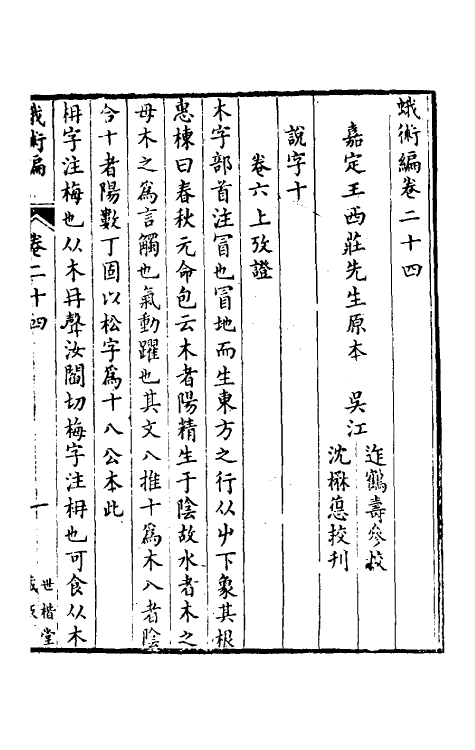 蛾術編卷二十四
嘉定王西莊先生原本　吳江
迮鶴壽參校
沈楙悳挍刊
說字十
卷六上攷證
木字部首注冒也冒地而生東方之行从屮下象其根
惠棟曰春秋元命包云木者陽精生于陰故水者木之
母木之爲言觸也氣動躍也其文八推十爲木八者陰
合十者陽數丁固以松字爲十八公本此
枏字注梅也从木冄聲汝閻切梅字注枏也可食从木
蛾術編　卷二十四　一　世楷堂